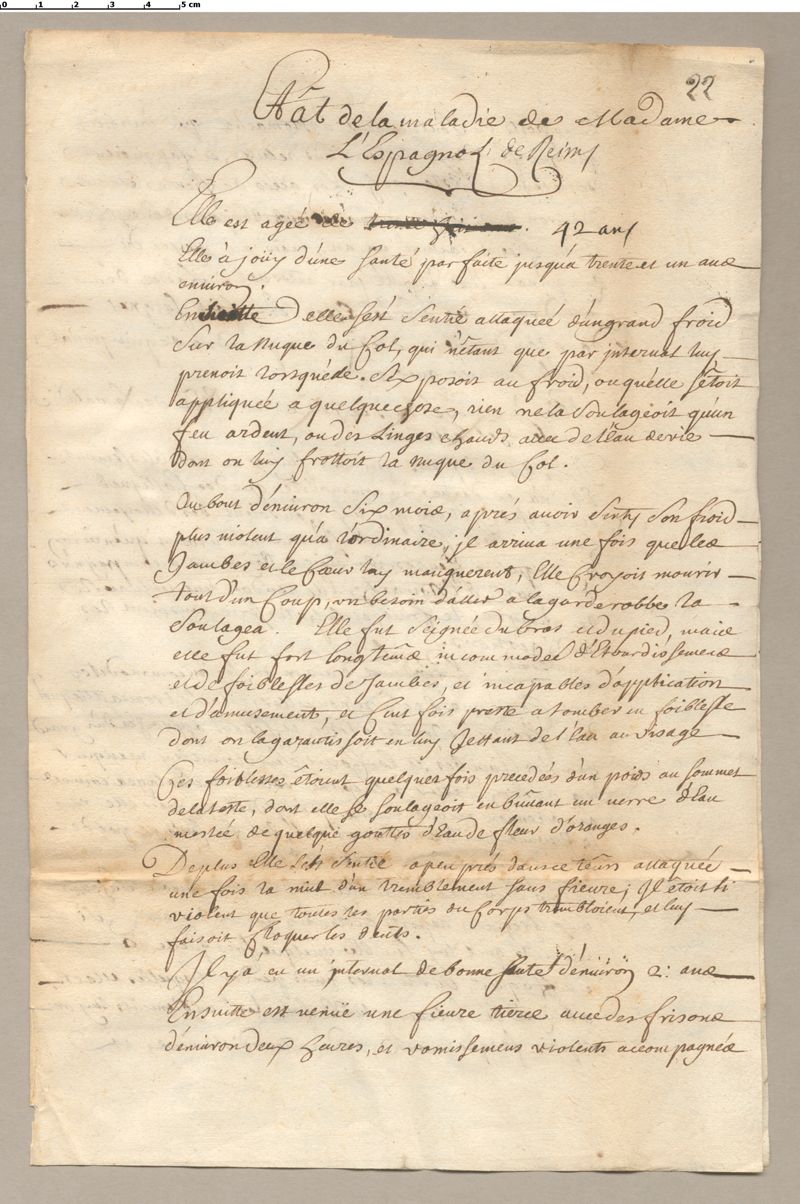 0 1 2 3 4 5 cm
22
Etât de la maladie de Madame
L'Espagnol de Reims
Elle est ageé de 42 ans
Elle à joüy d'úne santé parfaite jusqu'a trente et un ans
enuiron.
Ensuitte elle s'est sentie attaqueé d'un grand froid
sur la nuque du Col, qui n'êtant que par interual luy
prenoit lorsqu'éle s'exposoit au froid, ou qu'élle s'êtoit
appliquée a quelque chose, rien ne la soulageoit qu'un
feu ardent, ou des Linges chauds auec de l'Eau de vie
dont on luy frottoit la nuque du Col.
Au bout d'énuiron six mois, aprés auoir senty son froid
plus uiolent qu'a l'ordinaire, jl arriua une fois que les
Jambes et le Coeur luy manquerent, Elle Croyoit mourir
tout d'un Coup, vn besoin d'áller a la garderobbe la
soulagea. Elle fut seignée du bras et du pied, mais
elle fut fort longtems incommodeé d'Etourdissemens
et de foiblesses de Jambes, et incapables d'application
et d'amusement, et Cent fois preste a tomber en foiblesse
dont on la garantissoit en luy Jettant de l'Eau au visage
Ces foiblesses êtoient quelques fois precedeés d'un poids au sommet
de la teste, dont elle se soulageoit en bûuant un verre d'Eau
meslée de quelque gouttes d'Eau de fleur d'oranges.
De plus Elle s'ést sentie a peu prés dans ce têms attaquée
une fois la nuit d'un tremblement sans fieure; Jl êtoit si
violent que toutes les parties du Corps trembloient, et luy
faisoit Claquer les dents.
Jl y â eu un jnterual de bonne santé d'énuiron 2: ans
Ensuitte est venüe une fieure tierce auec des frisons
d'énuiron deux heures, et vomissemens violents accompagnés